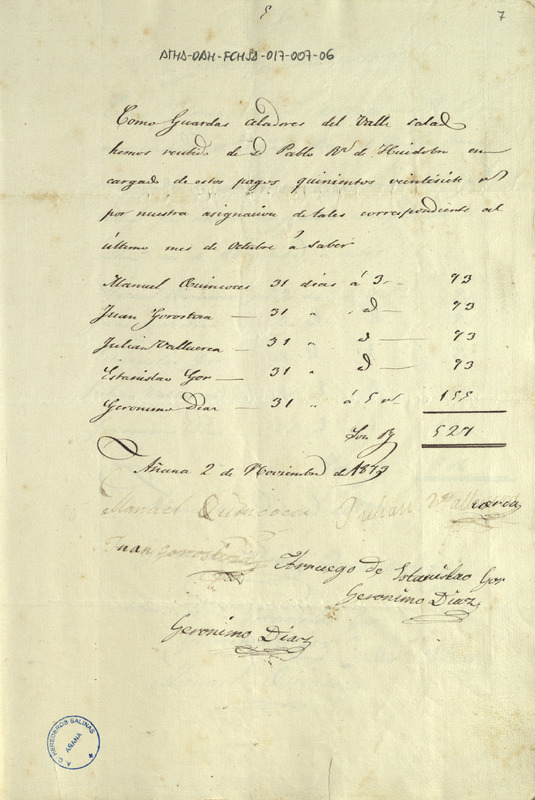 7
ATHA-DAH-FCHSA-017-007-06
Como Guardas celadores del Valle salado
hemos recibido de D Pablo Rz de Huidobro en
cargado de estos pagos quinientos veintisiete rs
por nuestra asignacion de tales correspondiente al
último mes de Octubre á saber
Manuel Quincoces 31 dias á 3 93
Juan Gorostiza 31 " " 93
Julian Valluerca 31 " " 93
Estanislao Gor 31 " " 93
Geronimo Diaz 31 " á 5 rs 155
Son R 527
Añana 2 de Noviembre de 1873
Manuel Quincoces Julian Valluerca
Juan Gorostiza
A ruego de Estanislao Gor
Geronimo Diaz
Geronimo Diaz
HEREDEROS SALINAS
AÑANA